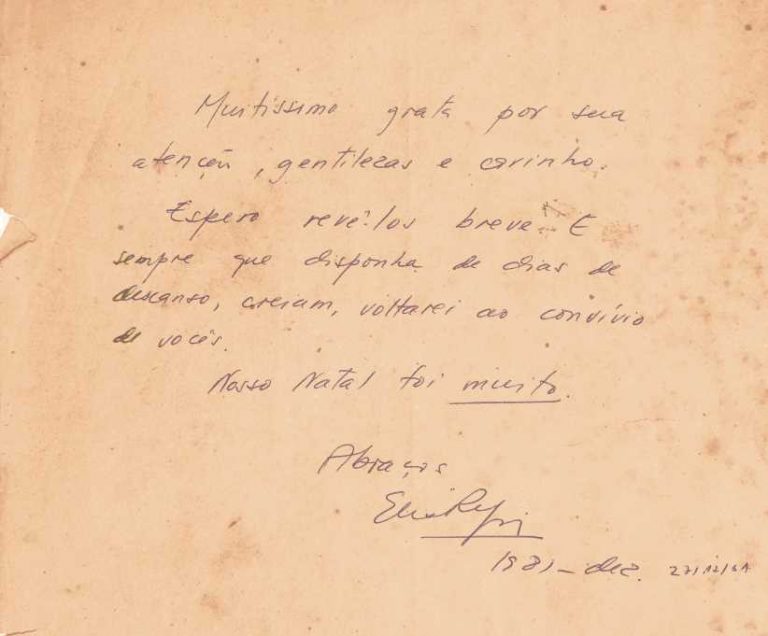 Muitissimo grata por sua
atenção, gentilezas e carinho.
Espero revê-los breve. E
sempre que disponha de dias de
descanso, creiam, voltarei ao convívio
de vocês.
Nosso Natal foi muito.
Abraços
1981 - dez. 27/12/81